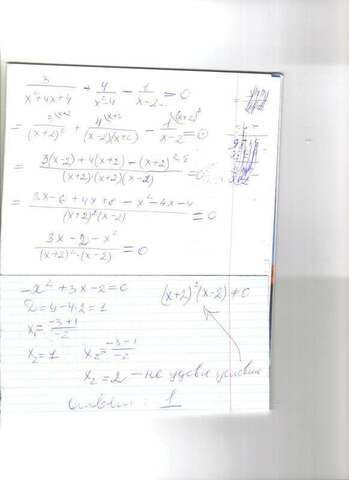 3/(x²+4x+4) + 4/(x²-4) - 1/(x-2) = 0
= 3\x-2/(x+2)² + 4\x+2/(x-2)(x+2) - 1\(x+2)²/(x-2) = 0
= (3(x-2)+4(x+2)-(x+2)²)/((x+2)(x+2)(x-2)) = 0
= (3x-6+4x+8-x²-4x-4)/((x+2)²(x-2)) = 0
(3x-2-x²)/((x+2)²·(x-2)) = 0
-x²+3x-2=0 (x+2)²(x-2)≠0
D=9-4·2=1
x₁=(-3+1)/-2
x₁=1 x₂=(-3-1)/-2
x₂=2 - не удовл условию
Ответ: 1